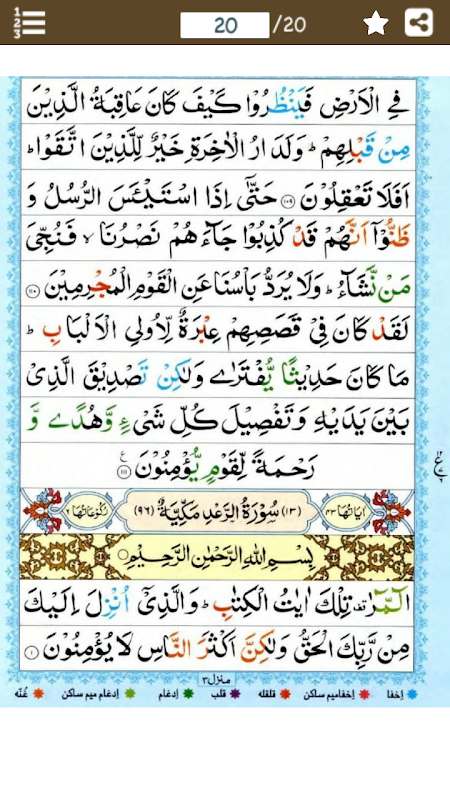 123
20 /20
فِی الْاَرْضِ فَیَنْظُرُوْا كَیْفَ كَانَ عَاقِبَةُ الَّذِیْنَ
مِنْ قَبْلِهِمْ ؕ وَلَدَارُ الْاٰخِرَةِ خَیْرٌ لِّلَّذِیْنَ اتَّقَوْا ؕ
اَفَلَا تَعْقِلُوْنَ ۝۱۰۹ حَتّٰۤی اِذَا اسْتَیْـَٔسَ الرُّسُلُ وَ
ظَنُّوْۤا اَنَّهُمْ قَدْ كُذِبُوْا جَآءَهُمْ نَصْرُنَا ۙ فَنُجِّیَ
مَنْ نَّشَآءُ ؕ وَلَا یُرَدُّ بَاْسُنَا عَنِ الْقَوْمِ الْمُجْرِمِیْنَ ۝۱۱۰
لَقَدْ كَانَ فِیْ قَصَصِهِمْ عِبْرَةٌ لِّاُولِی الْاَلْبَابِ ؕ
مَا كَانَ حَدِیْثًا یُّفْتَرٰی وَلٰكِنْ تَصْدِیْقَ الَّذِیْ
بَیْنَ یَدَیْهِ وَتَفْصِیْلَ كُلِّ شَیْءٍ وَّهُدًی وَّ
رَحْمَةً لِّقَوْمٍ یُّؤْمِنُوْنَ ۝۱۱۱
ع
اٰیَاتُهَا ۴۳ (۱۳) سُوْرَةُ الرَّعْدِ مَكِّیَّةٌ (۹۶) رُكُوْعَاتُهَا ۶
بِسْمِ اللّٰهِ الرَّحْمٰنِ الرَّحِیْمِ
الٓمّٓرٰ ۫ تِلْكَ اٰیٰتُ الْكِتٰبِ ؕ وَالَّذِیْۤ اُنْزِلَ اِلَیْكَ
مِنْ رَّبِّكَ الْحَقُّ وَلٰكِنَّ اَكْثَرَ النَّاسِ لَا یُؤْمِنُوْنَ ۝۱
منزل۳
اِخفا اِخفامیم ساکن قلقله قلب اِدغام اِدغام میم ساکن غُنّه